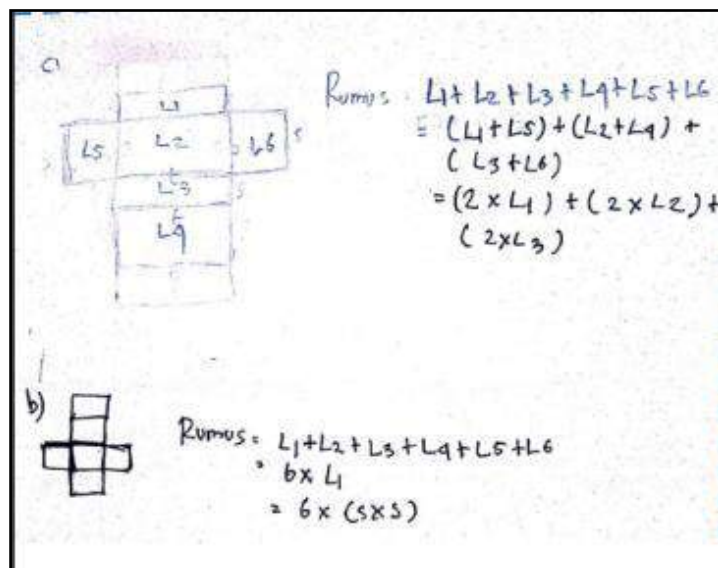 a
L1
L5 L2 L6 s
L3 s
L4
Rumus : L1 + L2 + L3 + L4 + L5 + L6
= (L1 + L5) + (L2 + L4) +
(L3 + L6)
= (2 × L1) + (2 × L2) +
(2 × L3)
b)
Rumus = L1 + L2 + L3 + L4 + L5 + L6
= 6 × L1
= 6 × (s × s)